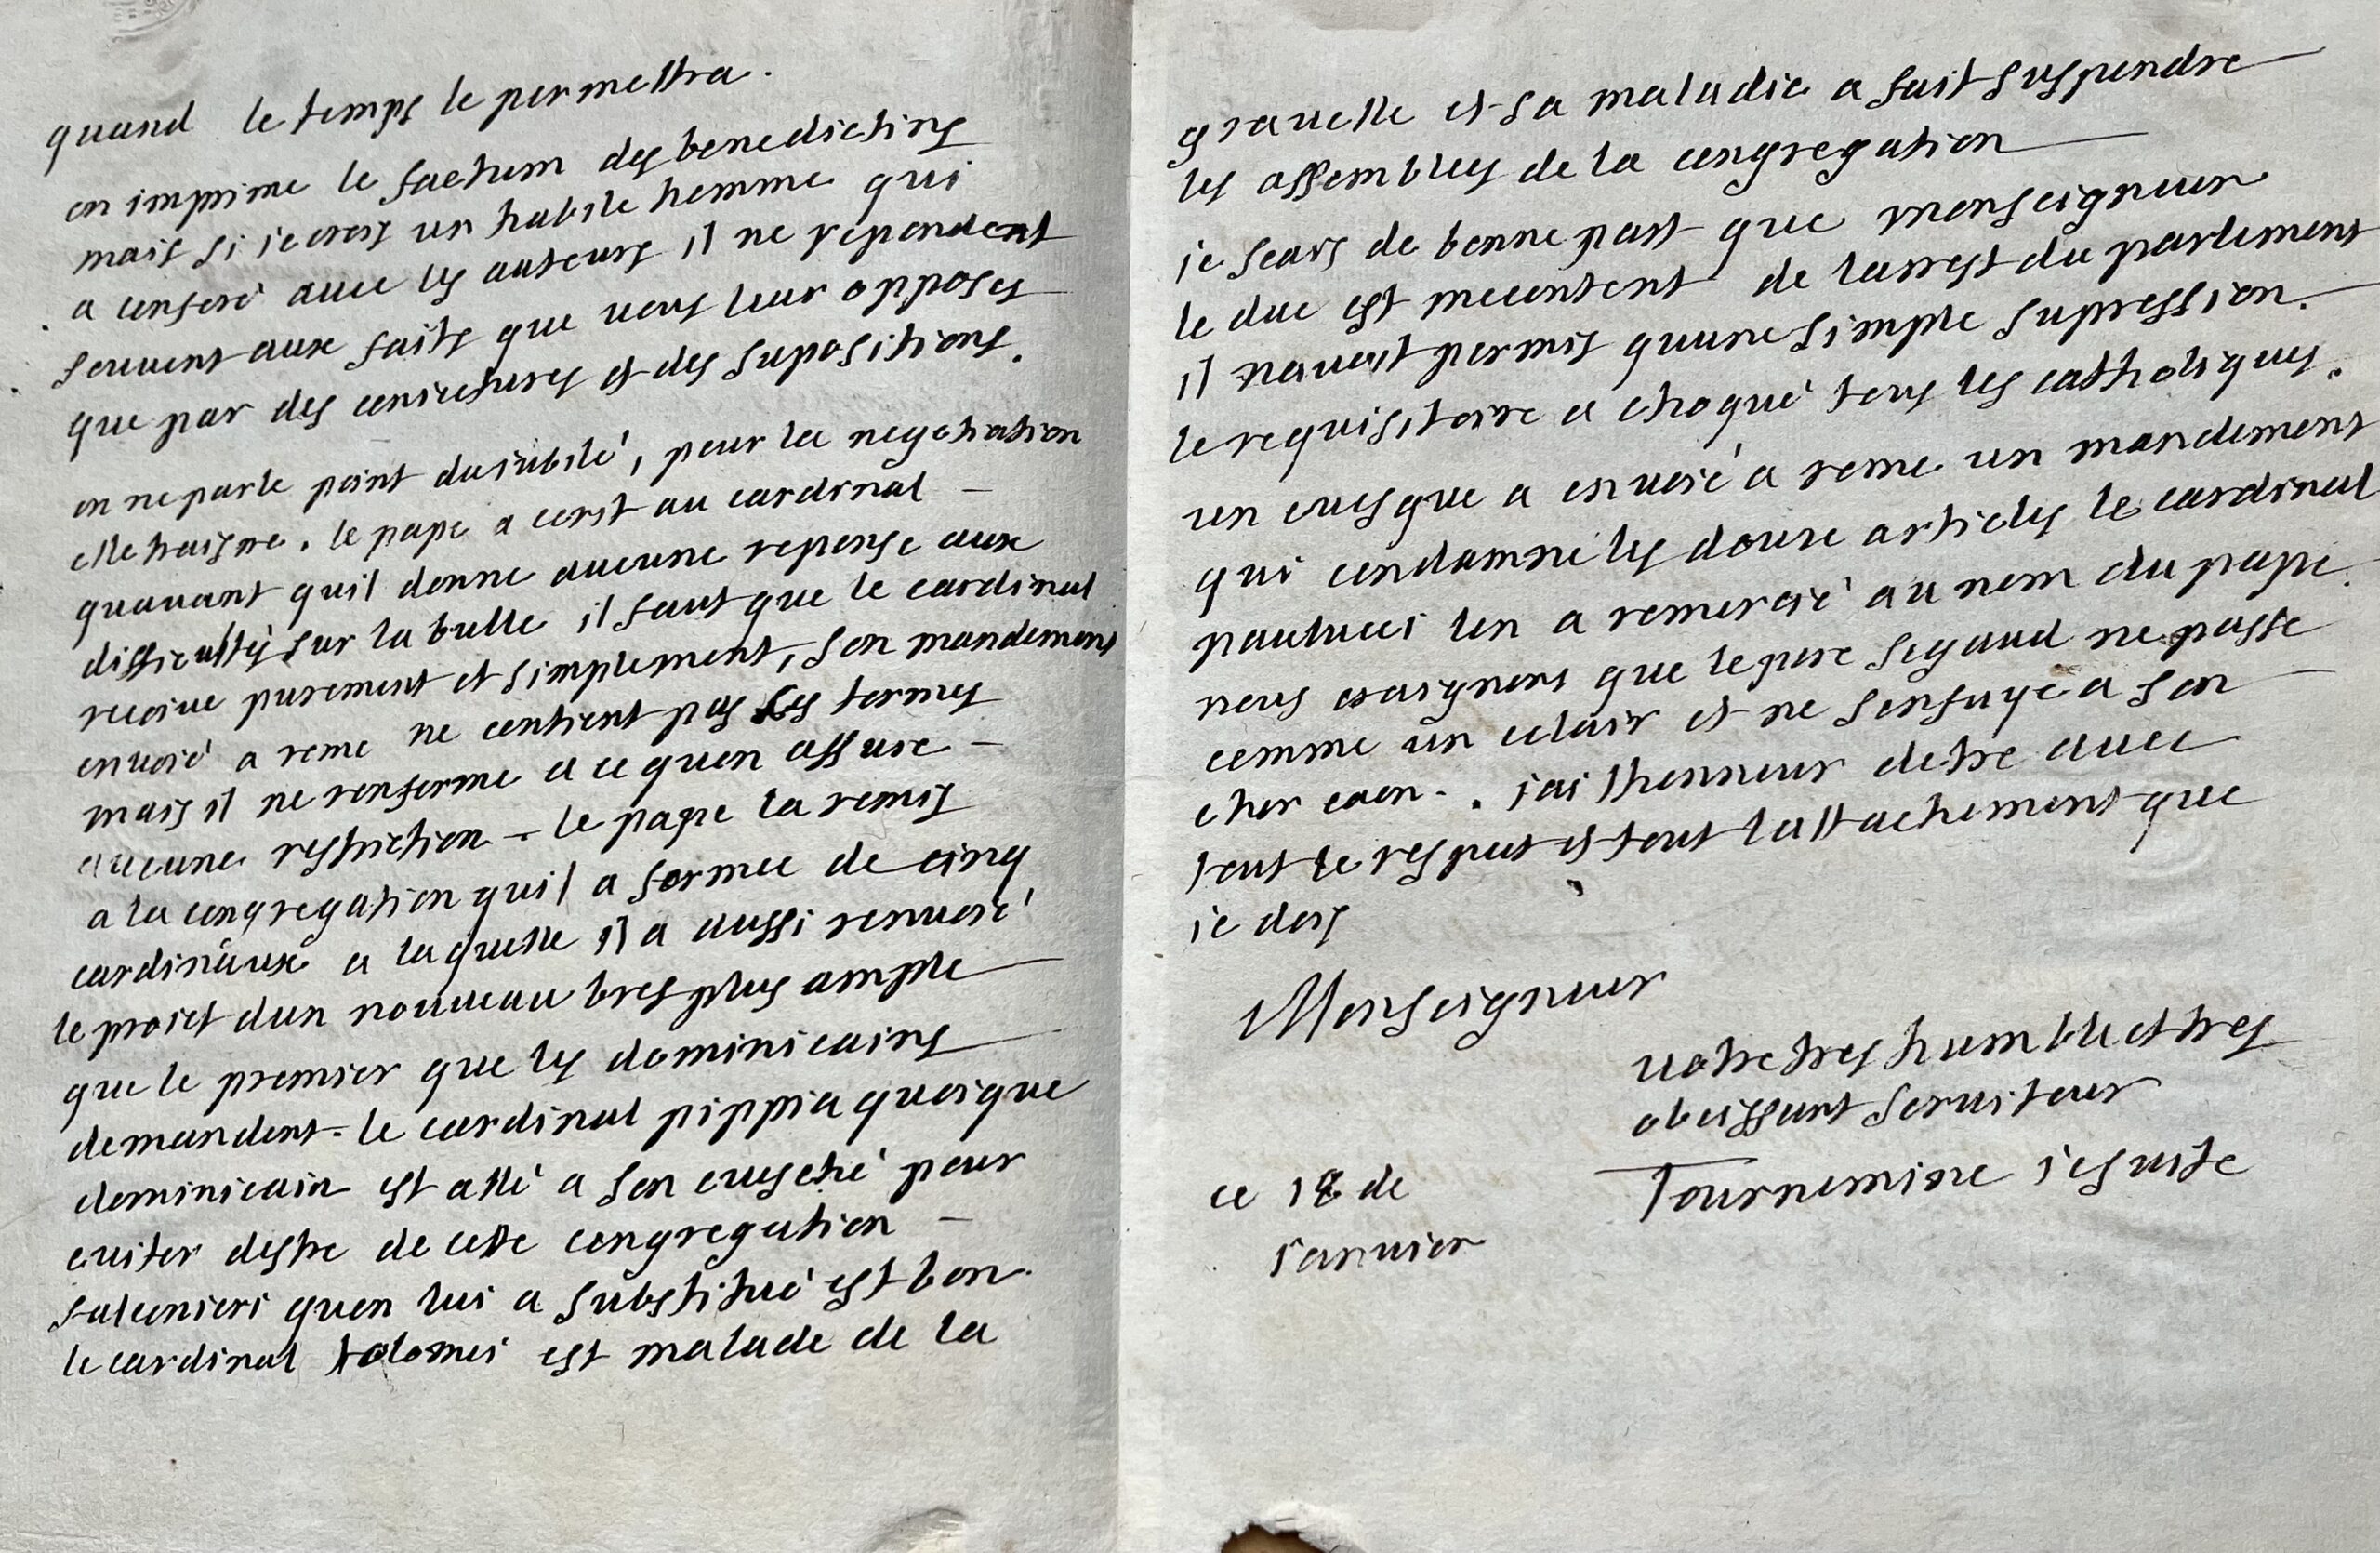 quand le temps le permettra.
on imprime le factum des benedictins
mais si ie crois un habile homme qui
a conferé auec les auteurs il ne repondent
souuent aux faits que vous leur opposes
que par des coniectures et des supositions.
on ne parle point du iubilé, pour la negotiation
elle traisne. le pape a ecrit au cardinal –
quauant quil donne aucune reponse aux
difficultés sur la bulle il faut que le cardinal
recoiue purement et simplement, son mandement
enuoié a rome ne contient pas ces termes
mais il ne renferme a ce quon assure –
aucune restriction – le pape la remis
a la congregation quil a formee de cinq
cardinaux a laquelle il a aussi renuoié
le proiet dun nouueau bref plus ample
que le premier que les dominicains
demandent. le cardinal pippia quoique
dominicain est allé a son euesché pour
euiter destre de cette congregation –
falconieri quon lui a substitué est bon.
le cardinal tolomei est malade de la
grauelle et sa maladie a fait suspendre
les assemblees de la congregation
ie scais de bonne part que monseigneur
le duc est mecontent de larrest du parlement
il nauoit permis quune simple supression.
le requisitoire a choqué tous les catholiques.
un euesque a enuoié a rome un mandement
qui condamne les douze articles le cardinal
paulucci len a remercié au nom du pape.
nous craignons que le pere segaud ne passe
comme un eclair et ne senfuye a son
cher caen. . iai lhonneur detre auec
tout le respect et tout lattachement que
ie dois
Monseigneur
votre tres humble et tres
obeissant seruiteur
Tournemine iesuite
ce 18 de
ianuier